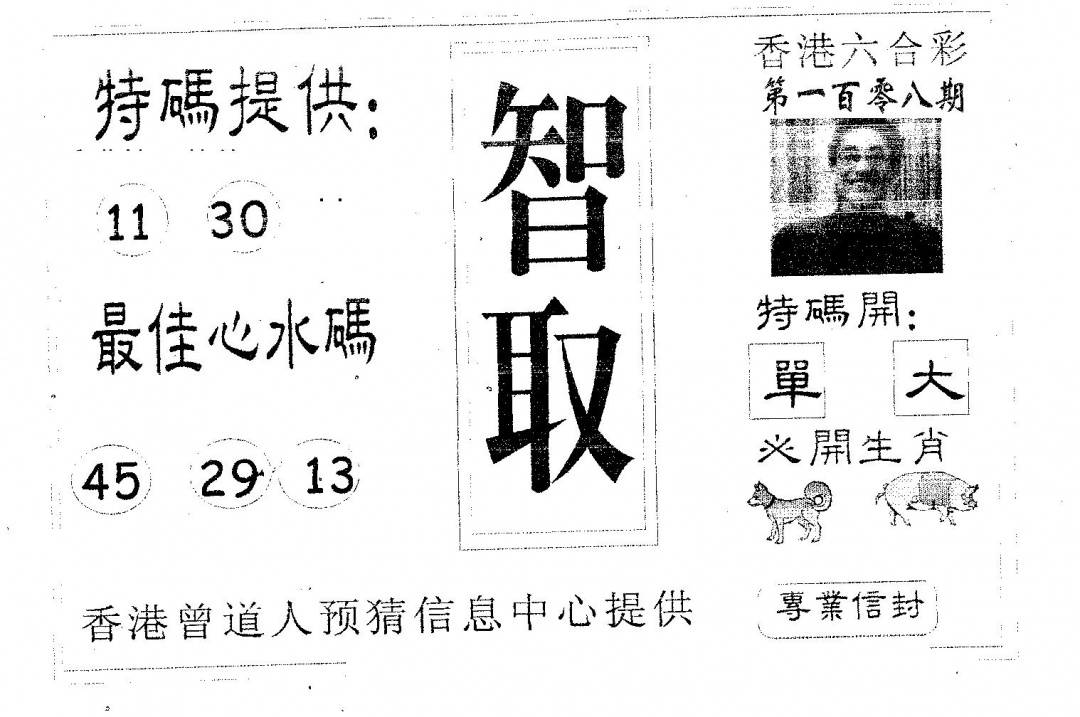 特碼提供:
11 30
最佳心水碼
45 29 13
智取
香港六合彩
第一百零八期
特碼開:
單 大
必開生肖
專業信封
香港曾道人预猜信息中心提供